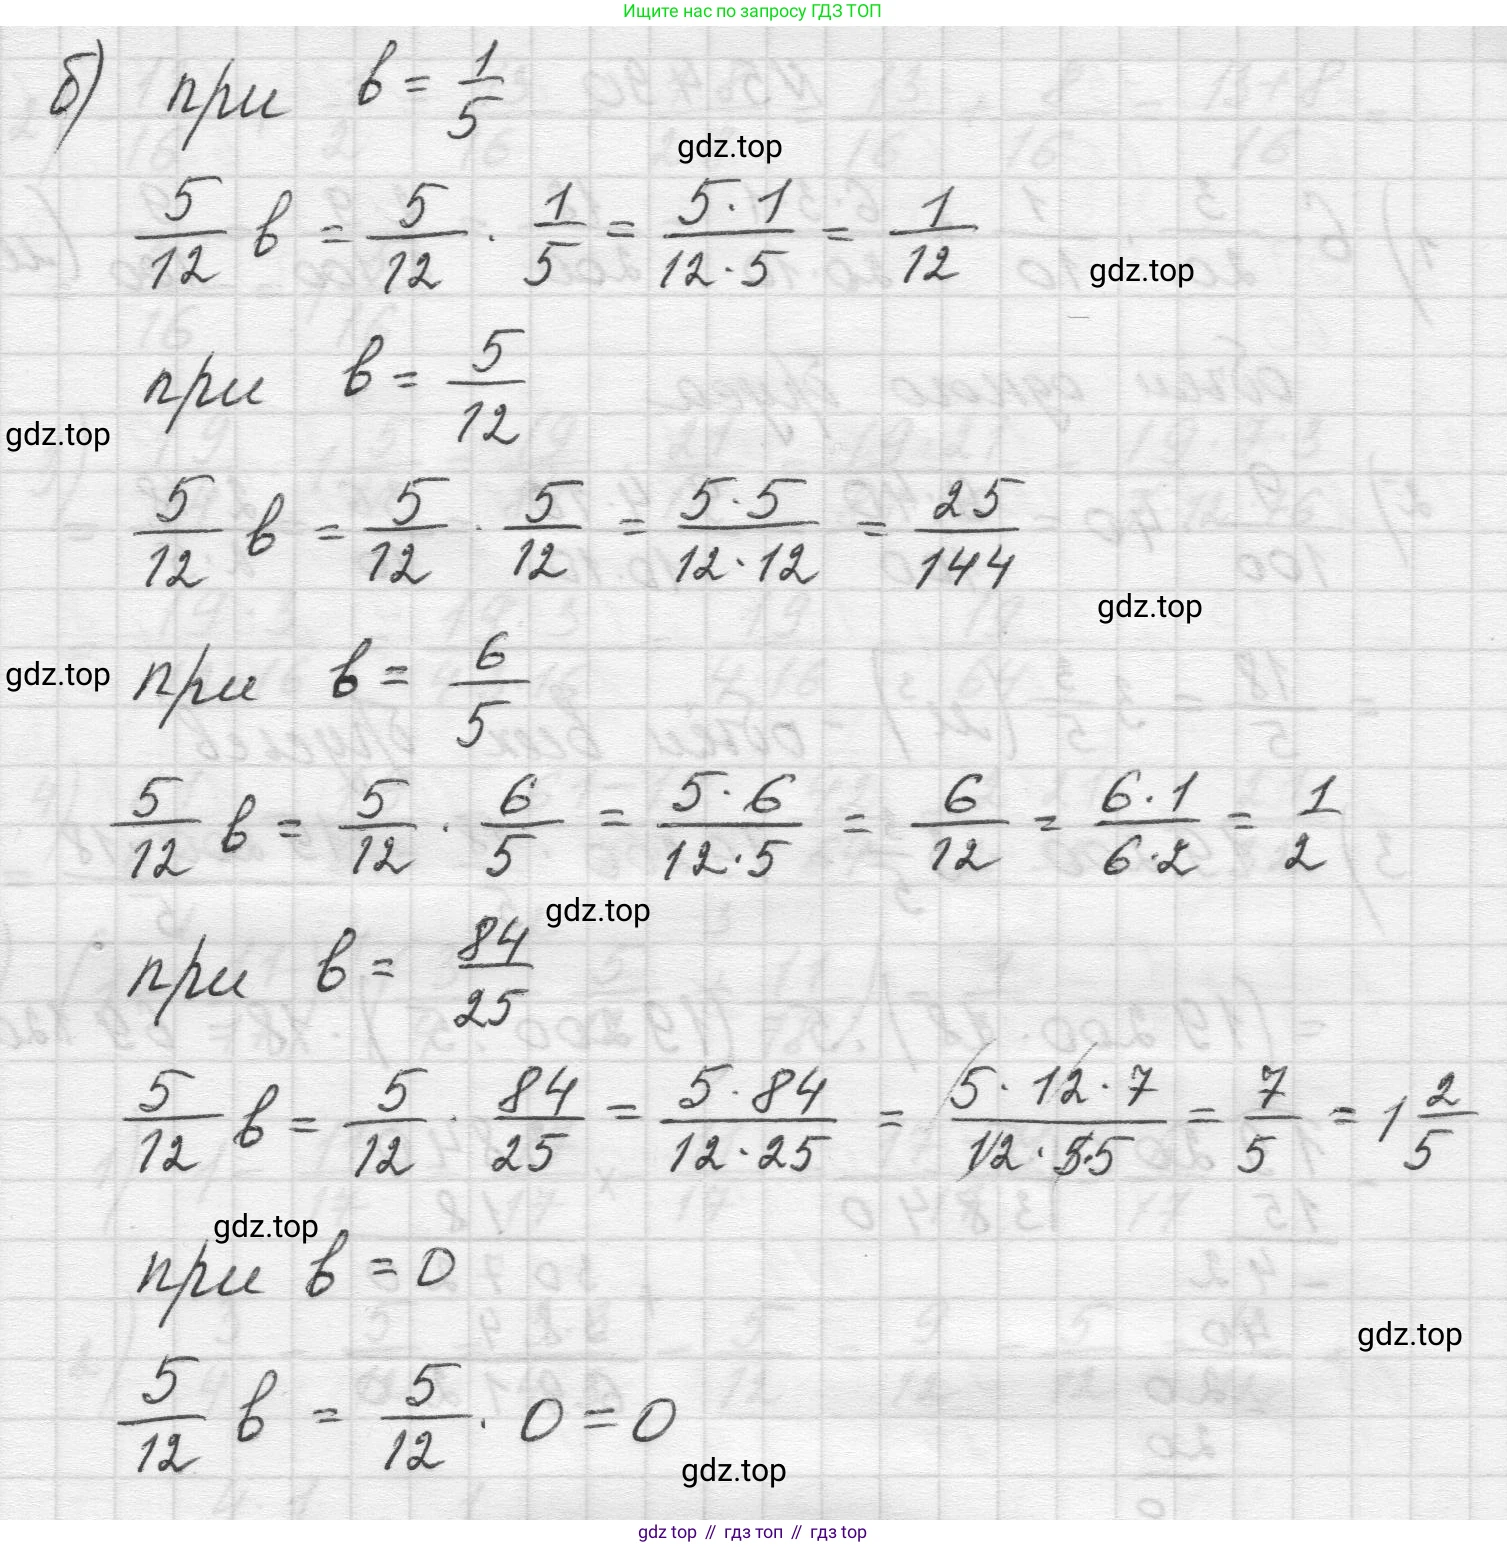 Ищите нас по запросу ГДЗ ТОП
б) при в = 1/5
gdz.top
5/12 в = 5/12 · 1/5 = 5·1/12·5 = 1/12
gdz.top
при в = 5/12
gdz.top
5/12 в = 5/12 · 5/12 = 5·5/12·12 = 25/144
gdz.top
gdz.top
при в = 6/5
5/12 в = 5/12 · 6/5 = 5·6/12·5 = 6/12 = 6·1/6·2 = 1/2
gdz.top
при в = 84/25
5/12 в = 5/12 · 84/25 = 5·84/12·25 = 5·12·7/12·5·5 = 7/5 = 1 2/5
gdz.top
при в = 0
gdz.top
5/12 в = 5/12 · 0 = 0
gdz.top
gdz top // гдз топ // гдз top